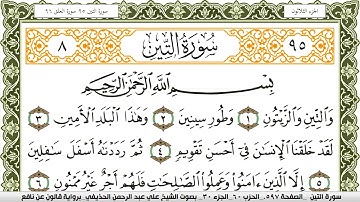 الجزء الثلاثون
سورة التين ٩٥ سورة العلق ٩٦
٩٥
سُورَةُ التِّينِ
٨
بِسْمِ اللَّهِ الرَّحْمَٰنِ الرَّحِيمِ
وَالتِّينِ وَالزَّيْتُونِ ١ وَطُورِ سِينِينَ ٢ وَهَٰذَا الْبَلَدِ الْأَمِينِ ٣
لَقَدْ خَلَقْنَا الْإِنسَٰنَ فِي أَحْسَنِ تَقْوِيمٍ ٤ ثُمَّ رَدَدْنَٰهُ أَسْفَلَ سَٰفِلِينَ
٥ إِلَّا الَّذِينَ ءَامَنُوا وَعَمِلُوا الصَّٰلِحَٰتِ فَلَهُمُ أَجْرٌ غَيْرُ مَمْنُونٍ ٦
سورة التين .. الصفحة ٥٩٧.. الحزب ٦٠ الجزء ٣٠ .. بصوت الشيخ علي عبد الرحمن الحذيفي .. برواية قالون عن نافع